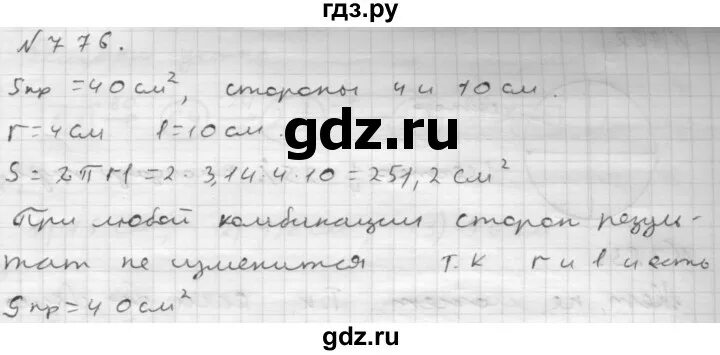 гдз.ру
№ 776.
Sпр = 40 см², стороны 4 и 10 см.
r = 4 см l = 10 см.
gdz.ru
S = 2πrl = 2 · 3,14 · 4 · 10 = 251,2 см²
При любой комбинации сторон резуль-
тат не изменится т.к r и l и есть
Sпр = 40 см²
gdz.ru